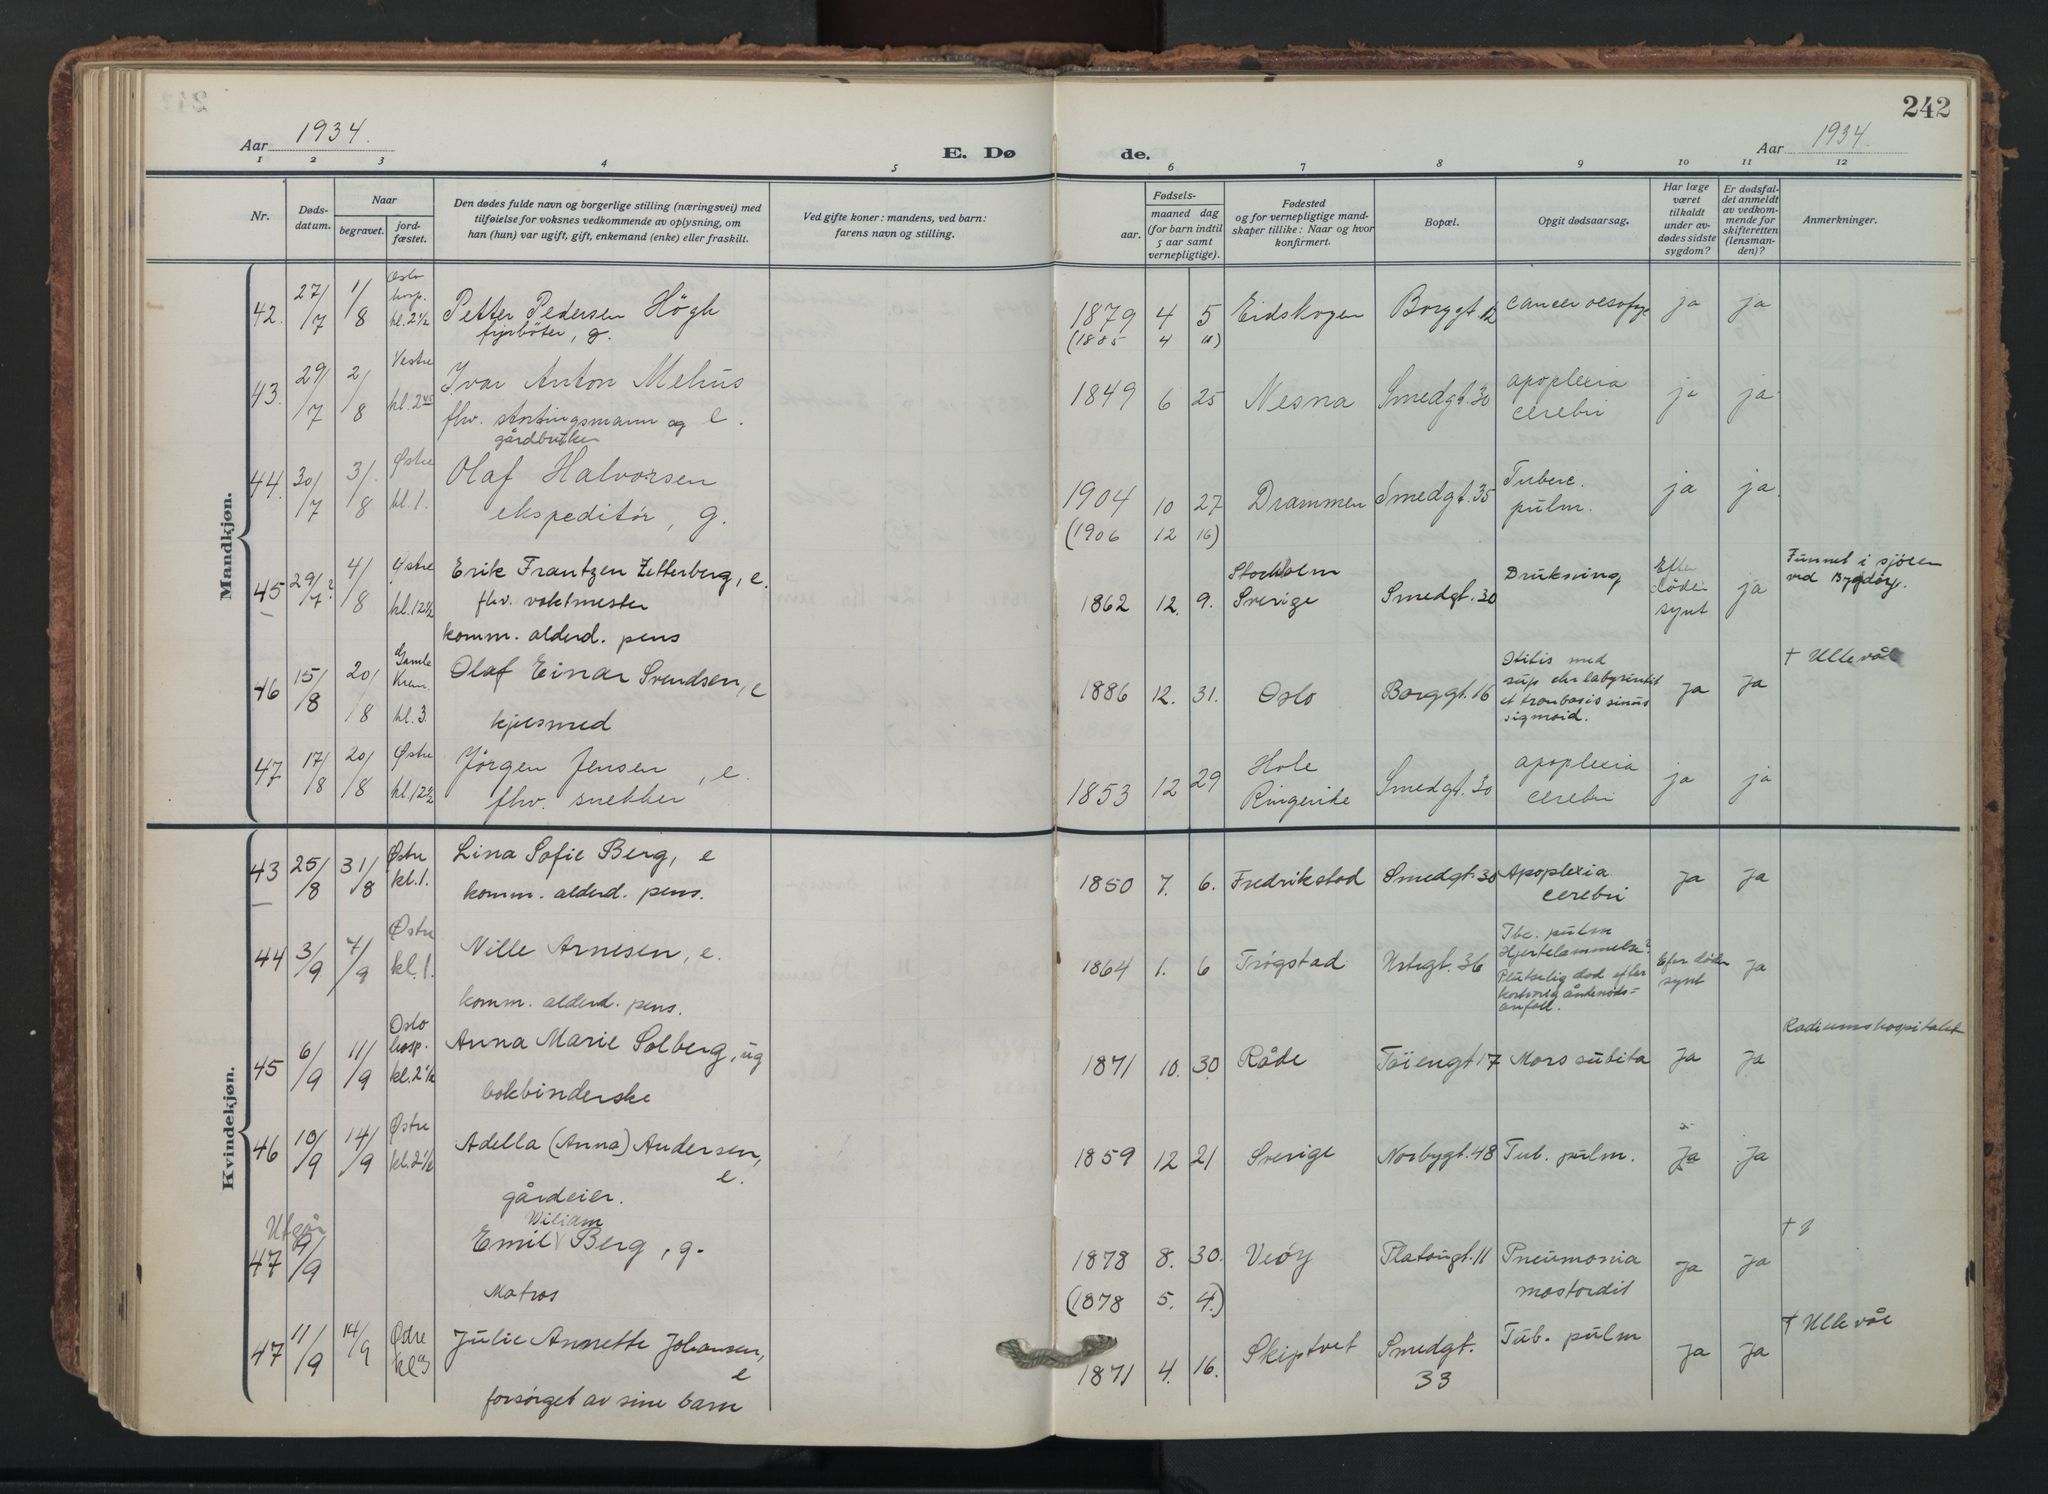 242
Aar 1934.
E. Dø
de.
Aar 1934.
1 2 3 4 5 6 7 8 9 10 11 12
Nr.
Døds-
datum.
Naar
begravet.
jord-
fæstet.
Den dødes fulde navn og borgerlige stilling (næringsvei) med
tilføielse for voksnes vedkommende av oplysning, om
han (hun) var ugift, gift, enkemand (enke) eller fraskilt.
Ved gifte koner: mandens, ved barn:
farens navn og stilling.
Fødsels-
aar.
maaned dag
(for barn indtil
5 aar samt
vernepligtige).
Fødested
og for vernepligtige mand-
skaper tillike: Naar og hvor
konfirmert.
Bopæl.
Opgit dødsaarsag.
Har læge
været
tilkaldt
under av-
dødes sidste
sygdom?
Er dødsfal-
det anmeldt
av vedkom-
mende for
skifteretten
(lensman-
den)?
Anmerkninger.
Mandkjøn.
42. 27/7 1/8 Oslo hosp. kl. 2 1/2 Petter Pedersen Högh 1879 4 5 Eidskogen Borggt. 12 cancer oesofag ja ja
fyrbøter, g. (1885 4 )
43. 29/7 2/8 Vestre kl. 2 45 Ivar Anton Mehus 1849 6 25 Nesna Smedgt. 30 apoplexia cerebri ja ja
fhv. stortingsmann og e.
gårdbruker
44. 30/7 3/8 Østre kl. 1. Olaf Halvorsen 1904 10 27 Drammen Smedgt. 35 Tuberc. pulm. ja ja.
ekspeditør, g. (1906 12 16)
45 29/7? 4/8 Østre kl. 12 1/2 Erik Frantzen Zetterberg, e. 1862 12. 9. Stockholm Sverige Smedgt. 30 Drukning Efter døden synt ja Funnet i sjöen ved Bygdøy.
fhv. vaktmester
komm. alderd. pens
46 15/8 20/8 Gamle Krem. kl. 3. Olaf Einar Svendsen, e 1886 12. 31. Oslo Borggt. 16 Otitis med sup labyrintit et trombosis sinus sigmoid. Ja Ja † Ullevål
kjelsmed
47 17/8 20/8 Østre kl. 12 1/2 Jørgen Jensen, e. 1853 12 29 Hole Ringerike Smedgt. 30 apoplexia cerebri ja ja
fhv. snekker
Kvindekjøn.
43 25/8 31/8 Østre kl. 1. Lina Sofie Berg, e 1850 7. 6. Fredrikstad Smedgt. 30 Apoplexia cerebri Ja Ja
komm. alderd. pens.
44 3/9 7/9 Østre kl. 1. Nille Arnesen, e. 1864 1. 6 Trøgstad Urtegt. 36 Tbc. pulm Hjertelammelse? Plutselig død efter kortvarig åndenøds-anfall. Efter døden synt Ja
komm. alderd. pens.
45 6/9 11/9 Oslo hosp. kl. 2 1/2 Anna Marie Solberg, ug 1871 10. 30. Råde Töiengt 17 Mors subita Ja Ja Radiumshospitalet
bokbinderske
46 10/9 14/9 Østre kl. 2 1/2 Adella (Anna) Andersen, e. 1859 12 21 Sverige Norbygt. 48 Tub. pulm. Ja Ja
gårdeier.
Utgår
47 9/9 Emil Wiliam Berg, g. 1878 8. 30. Veøy Platougt. 11 Pneumonia mastoidit Ja Ja †
Matros (1878 5. 4.)
47 11/9 14/9 Østre kl 3 Julie Annette Johansen, e 1871 4. 16. Skiptvet Smedgt. 33 Tub. pulm Ja Ja † Ullevål
forsørget av sine barn